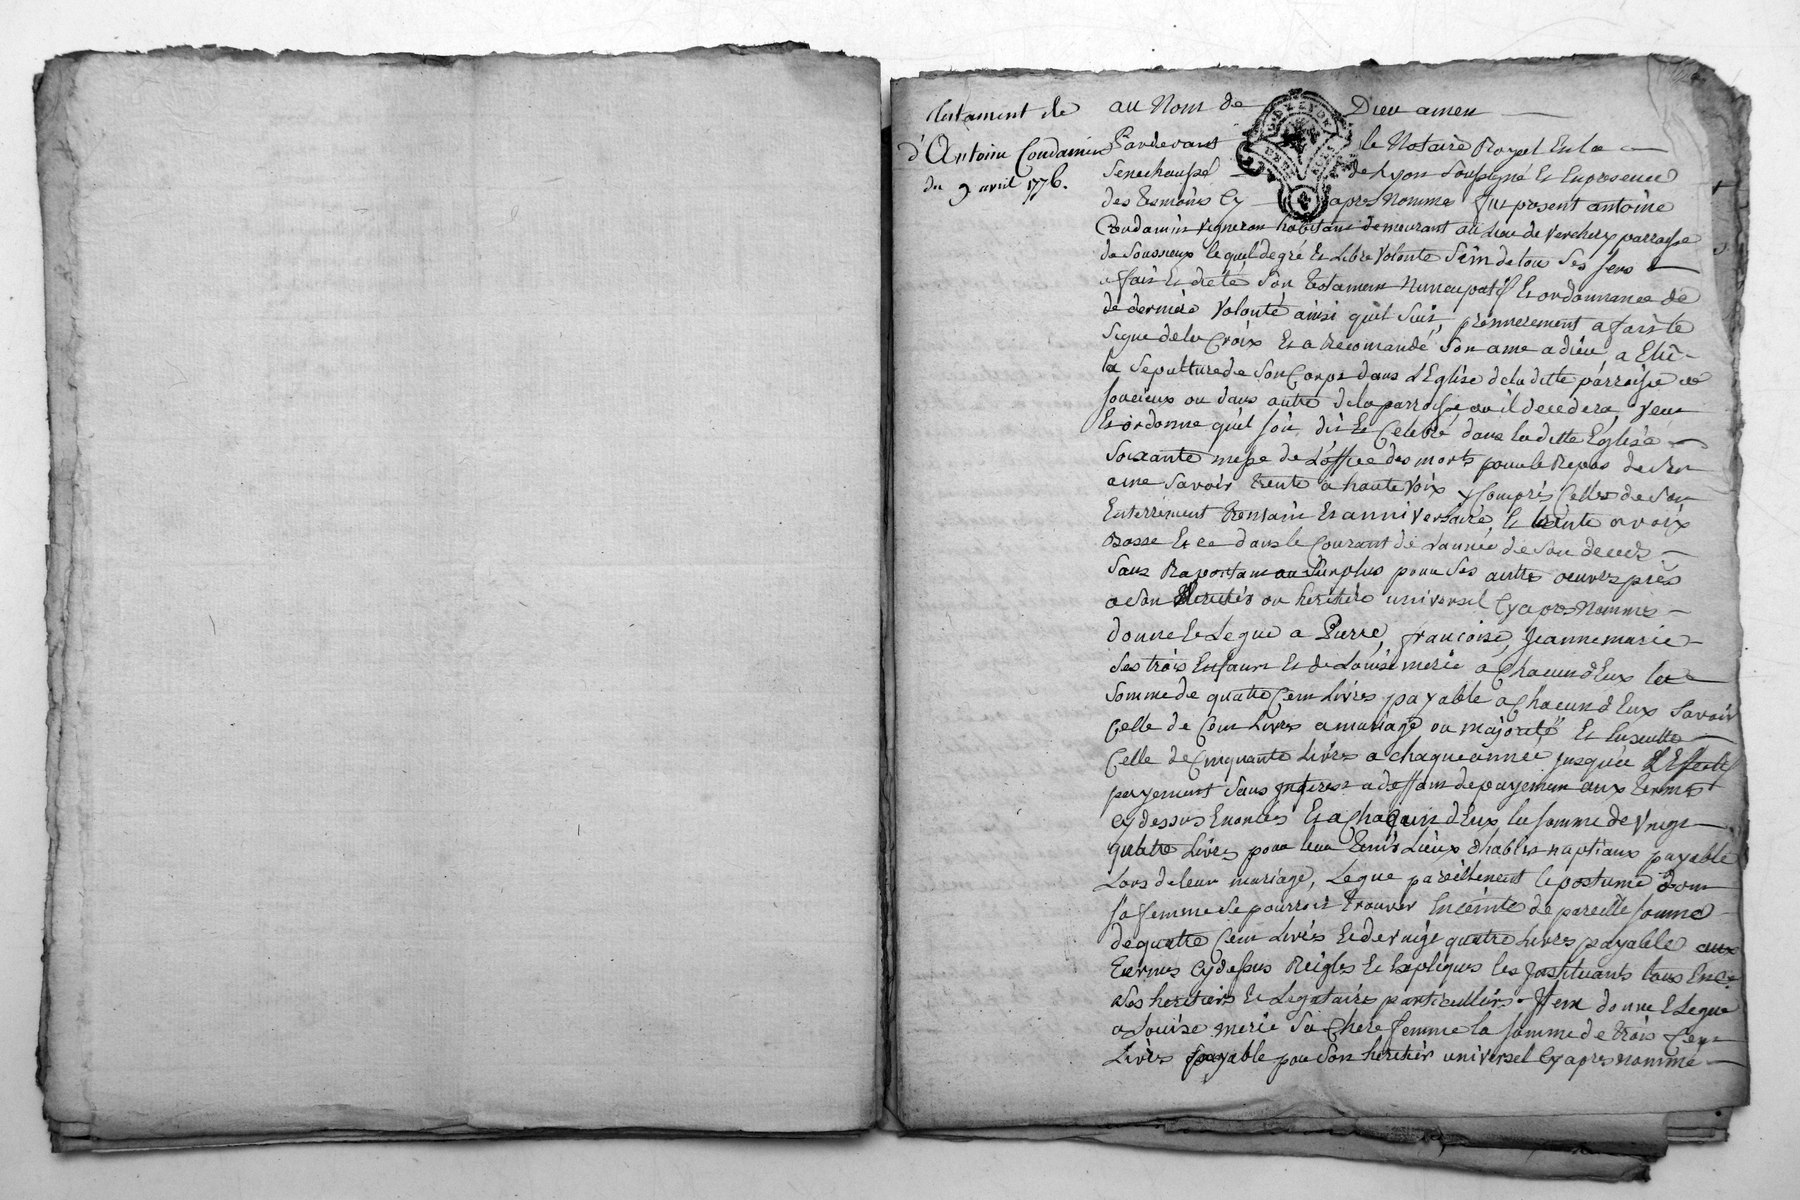 testament de
d'Antoine Condamin
du 9 avril 1776.
au Nom de Dieu amen
Pardevant le Notaire Royal En la
Senechaussé de Lyon Soussigné Et En presence
des tesmoins Cy apres Nommes fut present antoine
Condamin vigneron habitant demeurant au Lieu de Verchery parroisse
de Soussieux lequel de gré Et Libre Volonté Sein de tou Ses sens
a fait Et dicté Son testament Nuncupatif Et ordonnance de
de derniere Volonté ainsi quil Suit, premierement a fait le
Signe de la Croix Et a recomandé Son ame a dieu, a Elû
la Sepulture de Son Corps dans L'Eglise de la ditte parroisse de
soucieux ou dans autre de la parroisse ou il decedera, veut
Et ordonne quil soit dit Et Celebré dans la ditte Eglise
Soixante messe de L'office des morts pour le Repos de Son
ame Savoir trente a haute Voix y Compris Celles de Son
Enterrement trentain Et anniversaire, Et trente a voix
Basse Et ce dans le Courant de L'année de Son deces
Sans Raportant au Surplus pour Ses autres oeuvres pies
a Son heritier ou heritiere universel Cy apres Nommes
donne Et Legue a Pierre, francoise, Jeanne marie
Ses trois Enfants Et de Louise merie a Chacun d'Eux la
Somme de quatre Cent Livres payable a Chacun d'Eux Savoir
Celle de Cent Livres a mariage ou majorité Et Ensuitte
Celle de Cinquante Livres a chaque année jusquau
payement Sans interest a deffaut de payement aux termes
Cy dessus Enoncés Et a Chacun d'Eux la somme de Vingt
quatre Livres pour leur tenir Lieux d'habits nuptiaux payable
Lors de leur mariage, Legue pareillement le postume dont
sa femme se pourroit trouver Enceinte de pareille somme
de quatre Cent Livres Et de vingt quatre Livres payable aux
termes Cy dessus Reigles Et Expliqués les Instituants tous
Ses heritiers Et Legataires particulliers. Item donne Et Legue
a Louise merie Sa Chere femme la somme de trois Cent
Livres payable par Son heritier universel Cy apres nommé